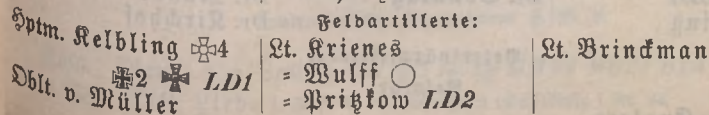 Feldartillerie:
Hptm. Kelbling ✠4
✠2 ✠ LD1
Oblt. v. Müller
Lt. Krienes
= Wulff ○
= Pritzkow LD2
Lt. Brinckman